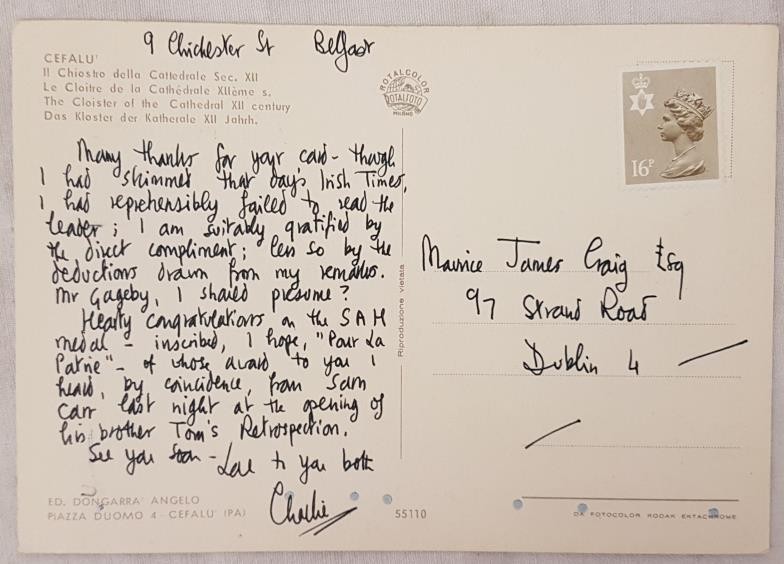 9 Chichester St Belfast
CEFALU'
Il Chiostro della Cattedrale Sec. XII
Le Cloitre de la Cathédrale XIIème s.
The Cloister of the Cathedral XII century
Das Kloster der Katherale XII Jahrh.
ROTALCOLOR
ROTALFOTO
MILANO
16P
Many thanks for your card - though
I had skimmed that day's Irish Times,
I had reprehensibly failed to read the
leader; I am suitably gratified by
the direct compliment; less so by the
deductions drawn from my remarks.
Mr Gageby, I should presume?
Hearty congratulations on the SAH
medal - inscribed, I hope, "Pour La
Patrie" - of whose award to you I
heard, by coincidence, from Sam
Carr last night at the opening of
his brother Tom's Retrospection.
See you soon - Love to you both
Charlie
Riproduzione vietata
Maurice James Craig Esq
97 Strand Road
Dublin 4
ED. DONGARRA' ANGELO
PIAZZA DUOMO 4 - CEFALU' (PA)
55110
DA FOTOCOLOR KODAK EKTACHROME